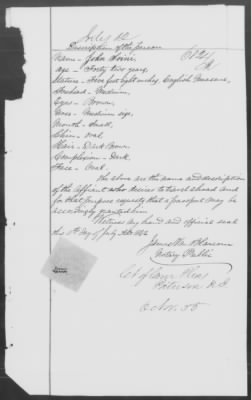 July 12
Description of the person
Name - John
Age - Forty two years,
Stature - Five feet eight inches, English Measure,
Forehead - Medium,
Eyes - Brown,
Nose - Medium size,
Mouth - Small,
Chin - oval,
Hair - Dark Brown
Complexion - Dark,
Face - Oval.
The above are the name and description
of the affiant who desires to travel abroad and
for that purpose requests that a passport may be
accordingly granted him.
Witness my hand and official seal
this day of July
Notary Public
Paterson N. J.